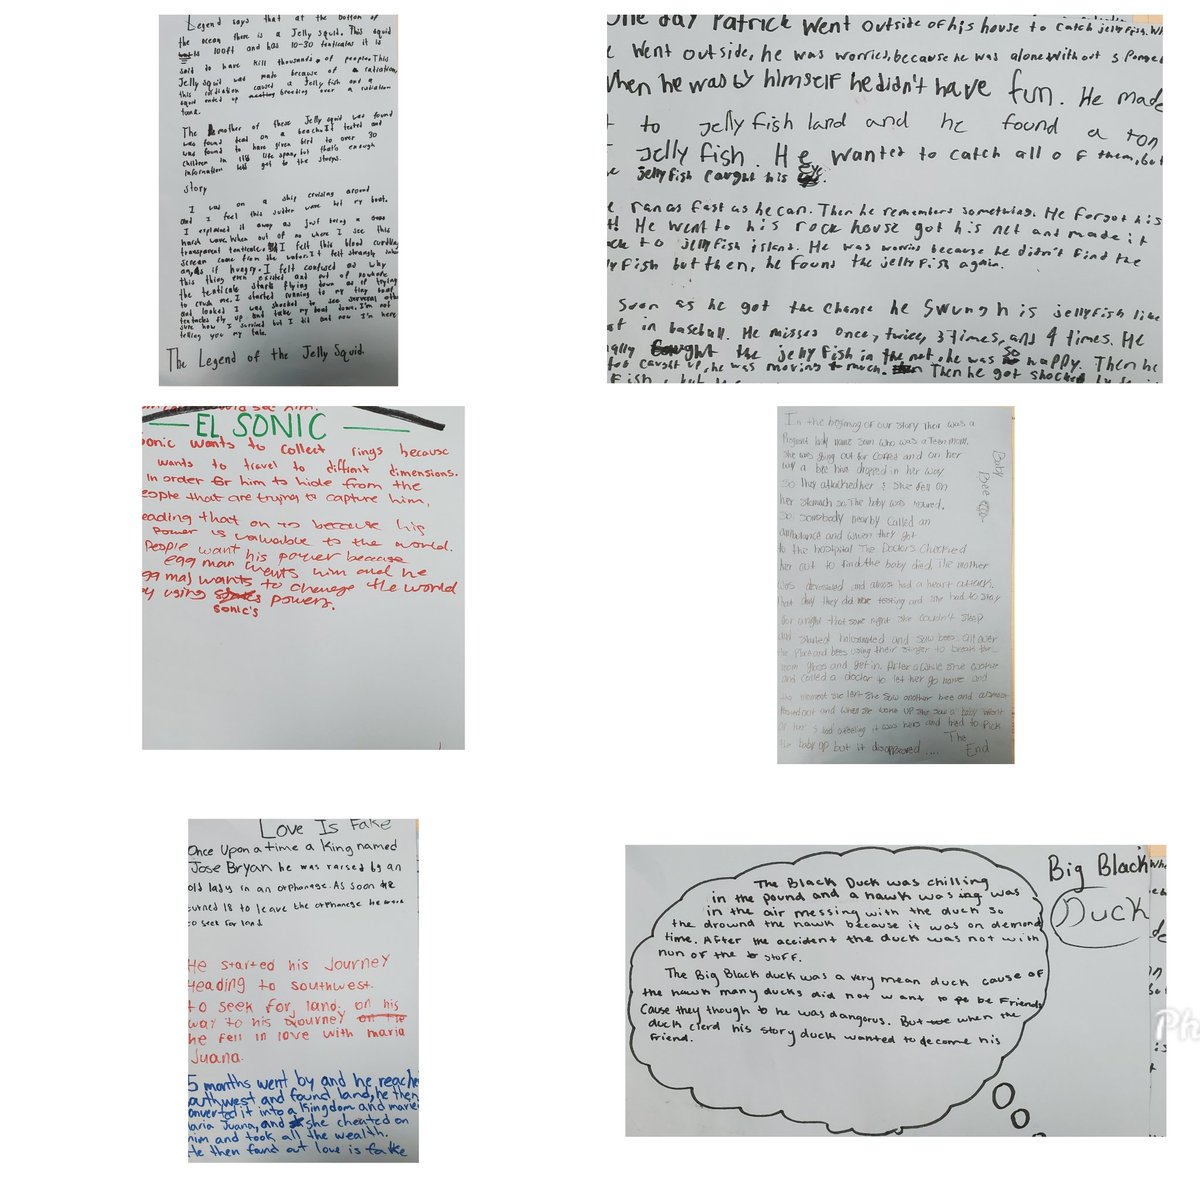 Legend says that at the bottom of
the ocean there is a Jelly squid. This squid
is 100ft and has 10-30 tenticales it is
said to have kill thousands of people. This
Jelly squid was made because of a radiation,
this radiation caused a Jelly fish and a
squid ended up breeding over a radiation
The mother of these Jelly squid was found
was found dead on a beach. It tested and
was found to have given bird to over 30
children in life span, but that's enough
information lets get to the storys.
story
I was on a ship cruising around
and I feel this sudden wave hit my boat.
I explained it away as just being a
harsh wave. When out of no where I see this
transparent tenticale. I fell this blood curdling
screan come from the water. It felt strangly
as if hungry. I felt confused as why
this thing even existed and out of nowhere
the tenticale starts flying down as if trying
to crush me. I started running to my tiny boat
and looked I was shocked to see serveral other
tentacles fly up and take my boat down. I'm not
sure how I survived but I did and now I'm here
telling you my tale.
The Legend of the Jelly Squid.
One day Patrick went outside of his house to catch jellyfish.
went outside, he was worried, because he was alone without
When he was by himself he didn't have fun. He made
to Jelly fish land and he found a ton
Jelly fish. He wanted to catch all of them, but
jellyfish caught his
ran as fast as he can. Then he remembers something. He forgot his
He went to his rock house got his net and made it
to jellyfish island. He was worried because he didn't find the
fish but then, he found the jelly fish again.
Soon as he got the chance he swung his jellyfish like
in baseball. He misses once, twice, 3 times, and 4 times. He
the jelly fish in the net, he was so happy. Then he
caught up, he was moving to much. Then he got shocked
EL SONIC
Sonic wants to collect rings because
wants to travel to diffrent dimensions.
In order for him to hide from the
people that are trying to capture him,
leading that on to because his
Power is valuable to the world.
People want his power because
egg man wants him and he
wants to change the world
by using sonic's powers.
Baby
Bee
In the begining of our story their was a
Pregnent lady name Sam who was a Teen mom.
She was going out for Coffee and on her
way a bee hive dropped in her way
so they attacked her & she fell on
her stomach so The baby was injured.
So somebody nearby called an
ambulance and when they got
to the hospital The Doctors checked
her out to find the baby died. The mother
was devestated and almost had a heart attack.
that day they did testing and she had to stay
for a night that same night she couldn't sleep
and started halusinated and saw bees all over
the place and bees using their stinger to break the
room glass and get in. After a while she
and called a doctor to let her go home and
the moment she left she saw another bee and
passed out and when she woke up she saw a baby
of her bed it was hers and tried to pick
the baby up but it disappeared.... The
End
Love Is Fake
Once Upon a time a King named
Jose Bryan he was raised by an
old lady in an orphanage. As soon he
turned 18 to leave the orphanese he
to seek for land
He started his Journey
Heading to southwest.
to seek for land. on his
way to his Journey
he fell in love with maria
Juana.
5 months went by and he reach
southwest and found land, he then
converted it into a kingdom and
Maria Juana, and she cheated on
him and took all the wealth.
He then found out love is fake
Big Black
Duck
The Black Duck was chilling
in the pound and a hawk was was
in the air messing with the duck so
the dround the hawk because it was on demond
time. After the accident the duck was not with
nun of the stuff.
The Big Black duck was a very mean duck cause of
the hawk many ducks did not want to be friends
Cause they though he was dangorus. But when the
duck clerd his story duck wanted to become his
friend.